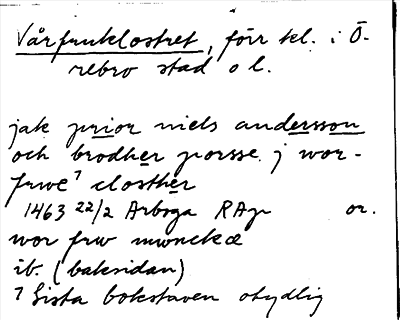 Vårfruklostret, förr kl. i Ö-
rebro stad o l.
jak prior niels andersson
och brodher porsse j wor-
frwe⁊ closther
1463 22/2 Arboga RAp or.
wor frw mwnckæ
ib. (baksidan)
⁊ Sista bokstaven otydlig